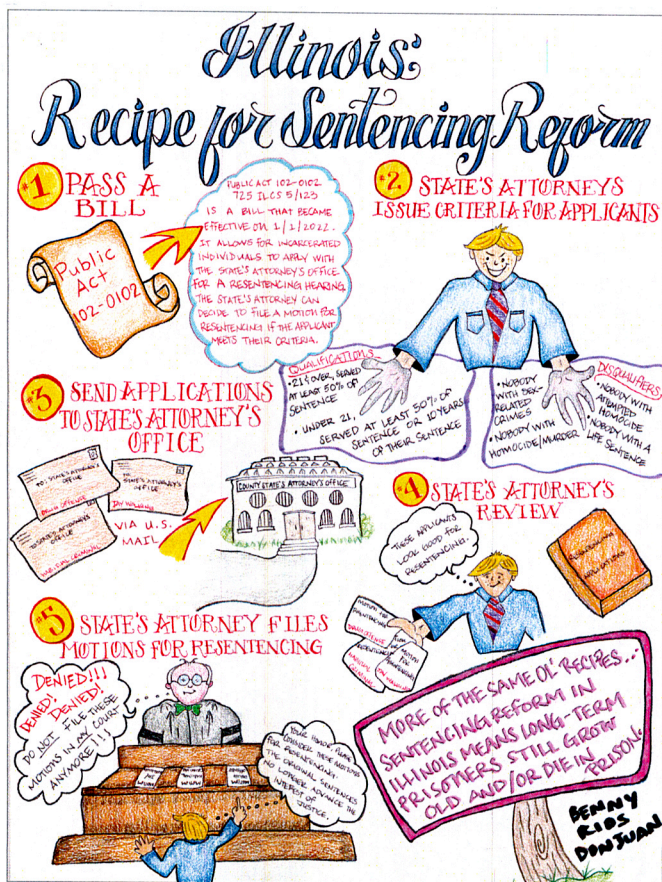 Illinois:
Recipe for Sentencing Reform
#1 PASS A
BILL
Public
Act
102-0102
PUBLIC ACT 102-0102
725 ILCS 5/123
IS A BILL THAT BECAME
EFFECTIVE ON 1/1/2022.
IT ALLOWS FOR INCARCERATED
INDIVIDUALS TO APPLY WITH
THE STATE'S ATTORNEY'S OFFICE
FOR A RESENTENCING HEARING.
THE STATE'S ATTORNEY CAN
DECIDE TO FILE A MOTION FOR
RESENTENCING IF THE APPLICANT
MEETS THEIR CRITERIA.
#2 STATE'S ATTORNEYS
ISSUE CRITERIA FOR APPLICANTS
QUALIFICATIONS
• 21 & OVER, SERVED
AT LEAST 50% OF
SENTENCE
• UNDER 21,
SERVED AT LEAST 50% OF
SENTENCE OR 10 YEARS
OF THEIR SENTENCE
DISQUALIFIERS
• NOBODY
WITH SEX-
RELATED
CRIMES
• NOBODY WITH
HOMOCIDE/MURDER
• NOBODY WITH
ATTEMPTED
HOMOCIDE
• NOBODY WITH A
LIFE SENTENCE
#3 SEND APPLICATIONS
TO STATE'S ATTORNEY'S
OFFICE
TO: STATE'S ATTORNEY'S
OFFICE
DRUG OFFENSE
TO: STATE'S ATTORNEY'S
OFFICE
JAY WALKING
TO: STATE'S ATTORNEY'S
OFFICE
HABITUAL CRIMINAL
VIA U.S.
MAIL
COUNTY STATE'S ATTORNEY'S OFFICE
#4 STATE'S ATTORNEY'S
REVIEW
THESE APPLICANTS
LOOK GOOD FOR
RESENTENCING.
RESENTENCING
MOTION FOR
RESENTENCING
DRUG OFFENSE
MOTION FOR
RESENTENCING
HABITUAL
CRIMINAL
JAY WALKING
#5 STATE'S ATTORNEY FILES
MOTIONS FOR RESENTENCING
DENIED!!!
DENIED!
DENIED!
DO NOT FILE THESE
MOTIONS IN MY COURT
ANYMORE!!!
YOUR HONOR, PLEASE
CONSIDER THESE MOTIONS
FOR RESENTENCING.
THE ORIGINAL SENTENCES
NO LONGER ADVANCE THE
INTEREST OF
JUSTICE.
MORE OF THE SAME OL' RECIPES...
SENTENCING REFORM IN
ILLINOIS MEANS LONG-TERM
PRISONERS STILL GROW
OLD AND/OR DIE IN
PRISON.
BENNY
RIOS
DONJUAN